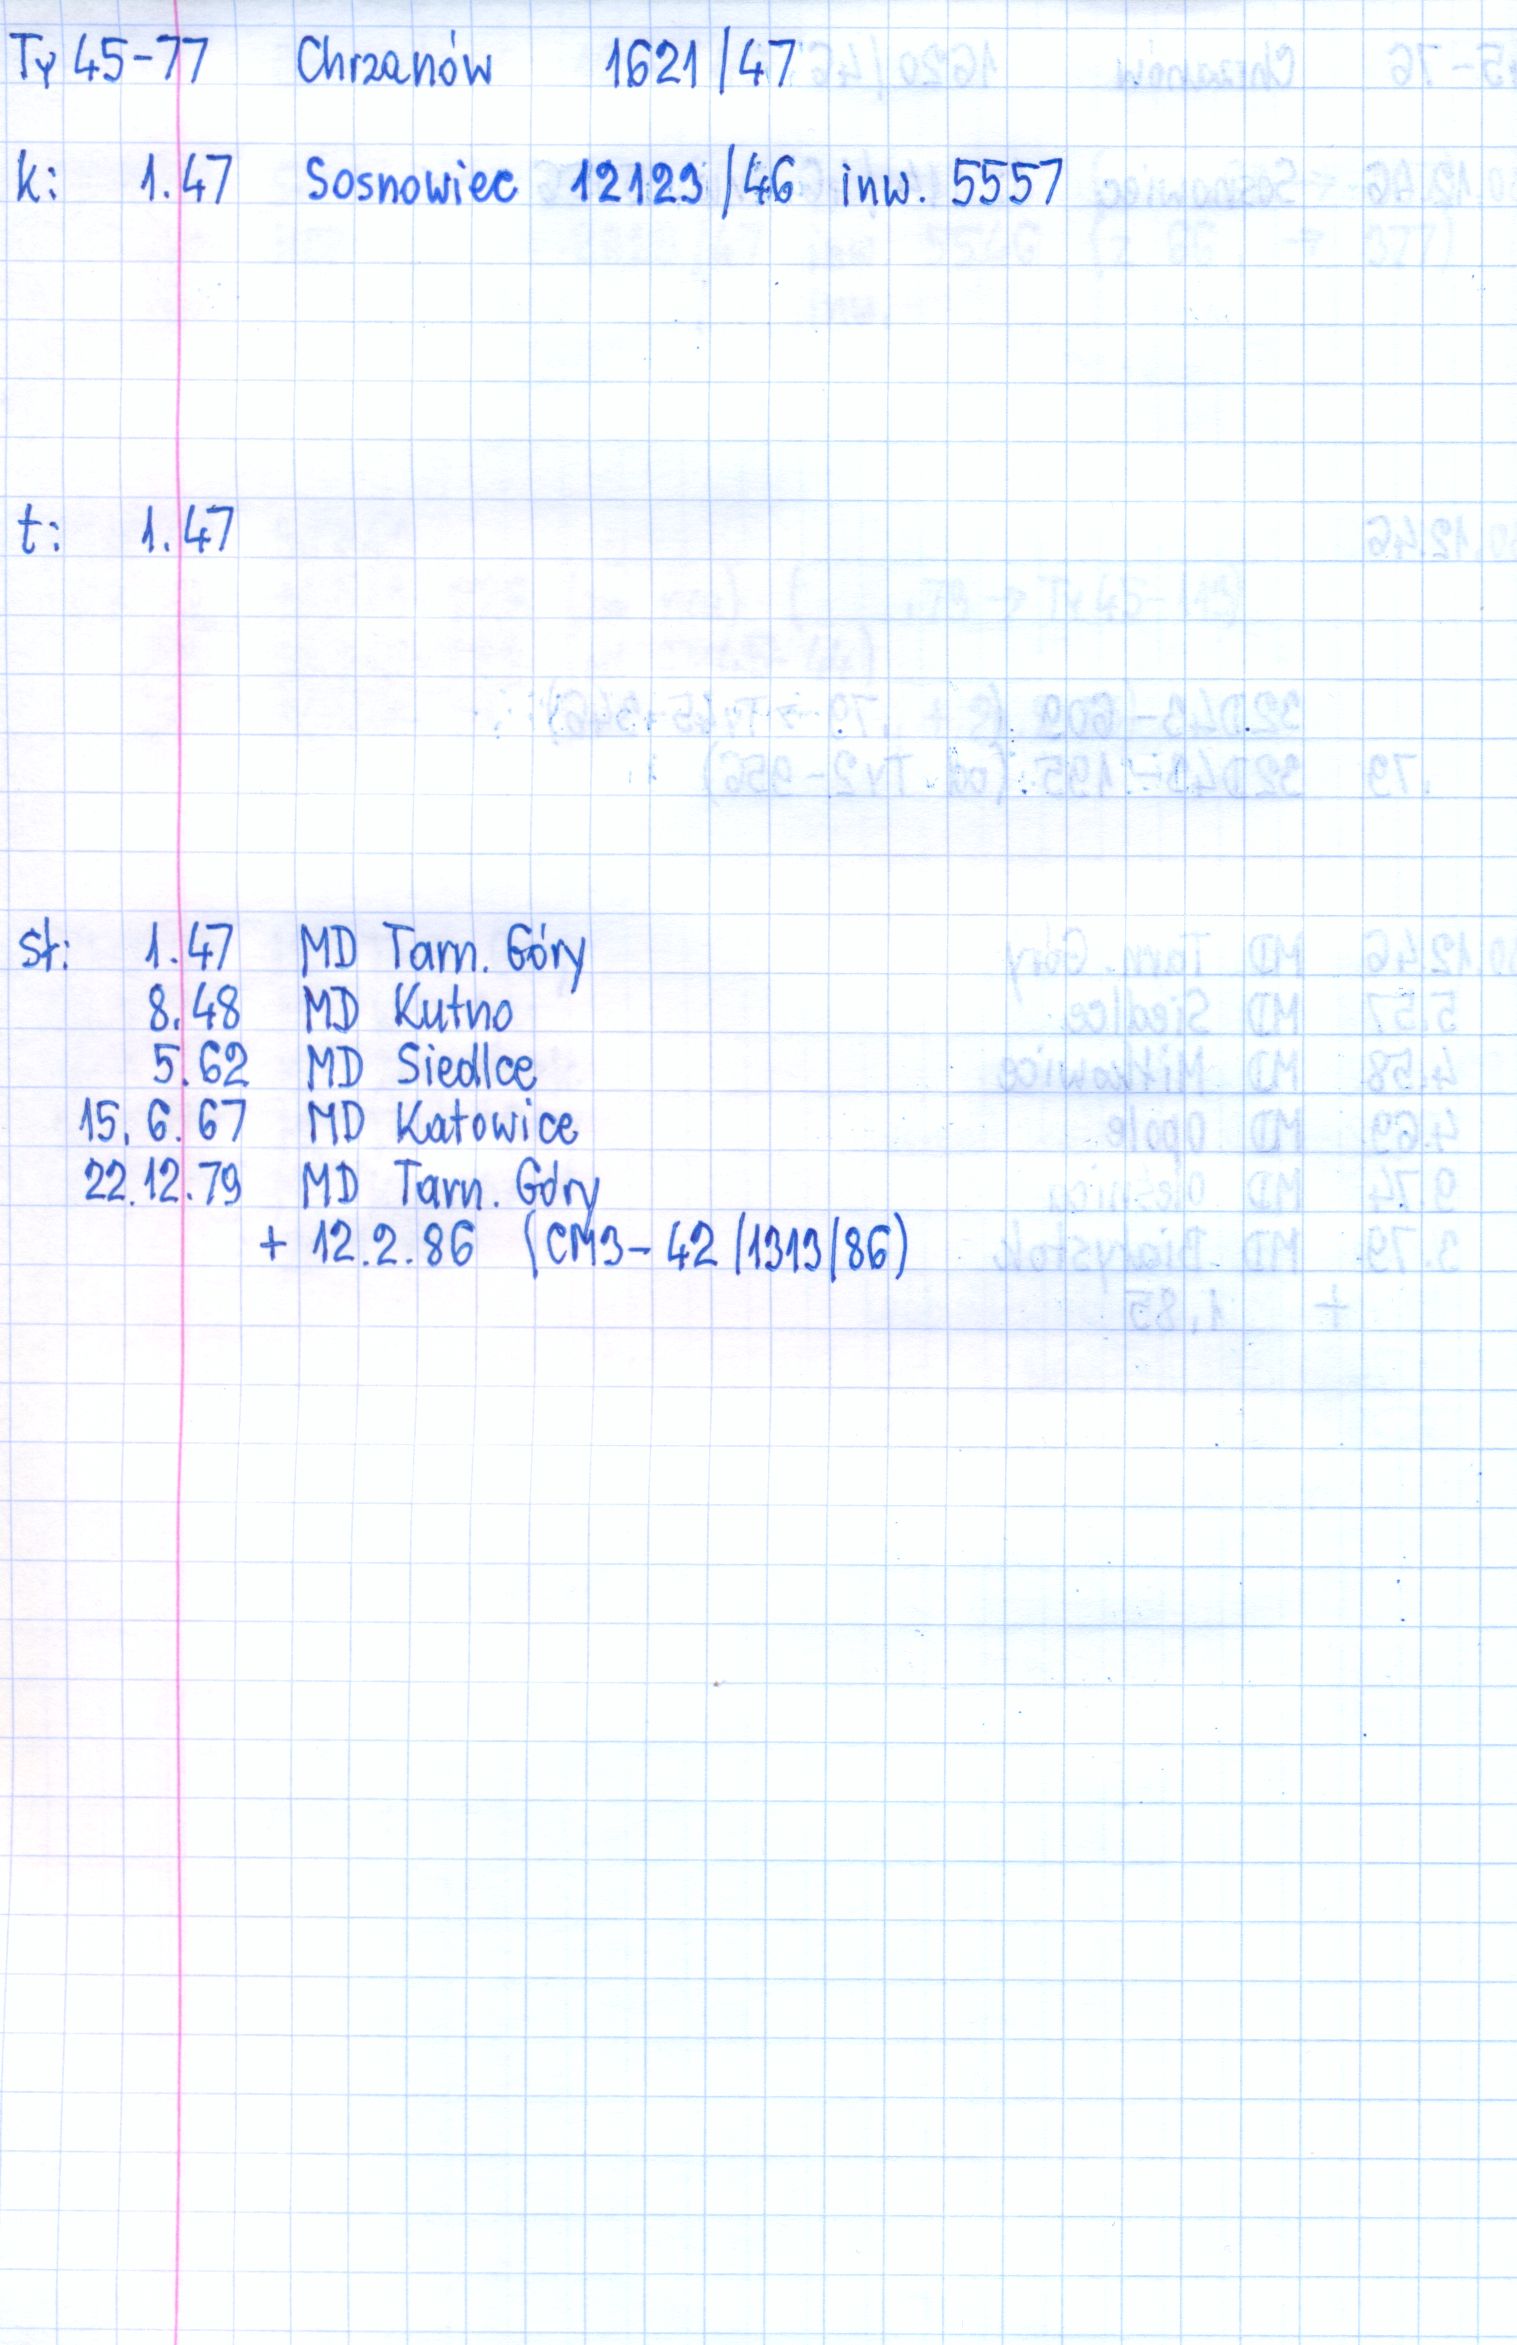 Ty 45-77 Chrzanów 1621/47
k: 1.47 Sosnowiec 12123/46 inw. 5557
t: 1.47
st: 1.47 MD Tarn. Góry
8.48 MD Kutno
5.62 MD Siedlce
15.6.67 MD Katowice
22.12.79 MD Tarn. Góry
+ 12.2.86 (CM3-42/1313/86)